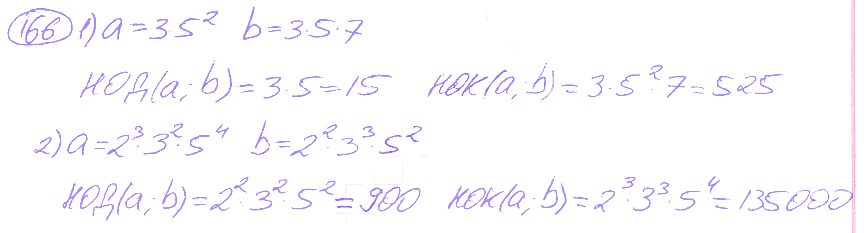 166 1) a = 3·5² b = 3·5·7
НОД(a; b) = 3·5 = 15 НОК(a; b) = 3·5²·7 = 525
2) a = 2³·3²·5⁴ b = 2²·3³·5²
НОД(a; b) = 2²·3²·5² = 900 НОК(a; b) = 2³·3³·5⁴ = 135000